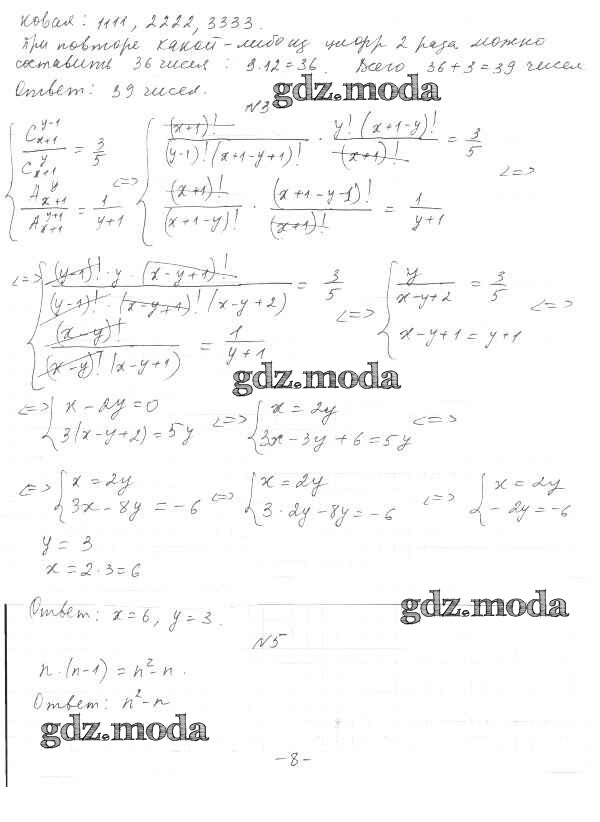 новая: 1111, 2222, 3333.
При повторе какой-либо из цифр 2 раза можно
составить 36 чисел: 3·12=36. Всего 36+3=39 чисел
Ответ: 39 чисел.
gdz.moda
N3
{ C_{x+1}^{y-1} / C_{x+1}^{y} = 3/5 <=> { (x+1)! / (y-1)!(x+1-y+1)! · y!(x+1-y)! / (x+1)! = 3/5 <=>
A_{x+1}^{y} / A_{x+1}^{y+1} = 1/(y+1) (x+1)! / (x+1-y)! · (x+1-y-1)! / (x+1)! = 1/(y+1)
<=> { (y-1)!·y·(x-y+1)! / (y-1)!·(x-y+1)!(x-y+2) = 3/5 <=> { y/(x-y+2) = 3/5 <=>
(x-y)! / (x-y)!(x-y+1) = 1/(y+1) x-y+1=y+1
gdz.moda
<=> { x-2y=0 <=> { x=2y <=>
3(x-y+2)=5y 3x-3y+6=5y
<=> { x=2y <=> { x=2y <=> { x=2y
3x-8y=-6 3·2y-8y=-6 -2y=-6
y=3
x=2·3=6
Ответ: x=6, y=3.
gdz.moda
N5
n·(n-1)=n²-n.
Ответ: n²-n
gdz.moda
-8-